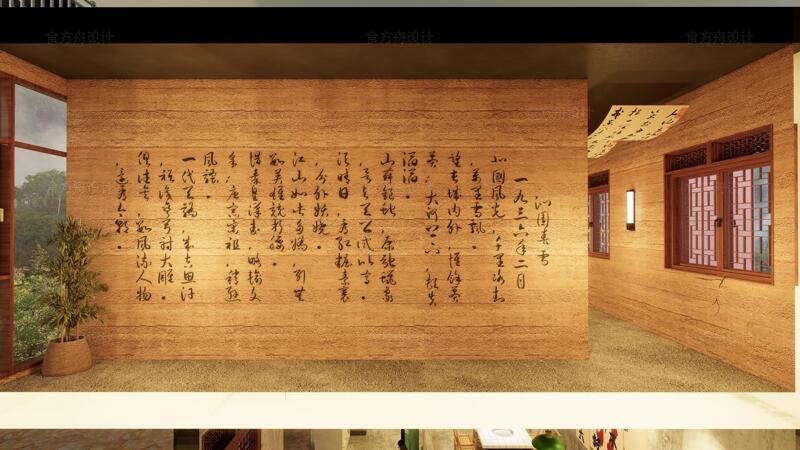 食方舟设计 食方舟设计 食方舟设计
沁园春雪
一九三六年二月
北国风光，千里冰封
，万里雪飘。
望长城内外，惟余莽
莽；大河上下，顿失
滔滔。
山舞银蛇，原驰蜡象
，欲与天公试比高。
须晴日，看红装素裹
，分外妖娆。
江山如此多娇，引无
数英雄竞折腰。
惜秦皇汉武，略输文
采；唐宗宋祖，稍逊
风骚。
一代天骄，成吉思汗
，只识弯弓射大雕。
俱往矣，数风流人物
，还看今朝。